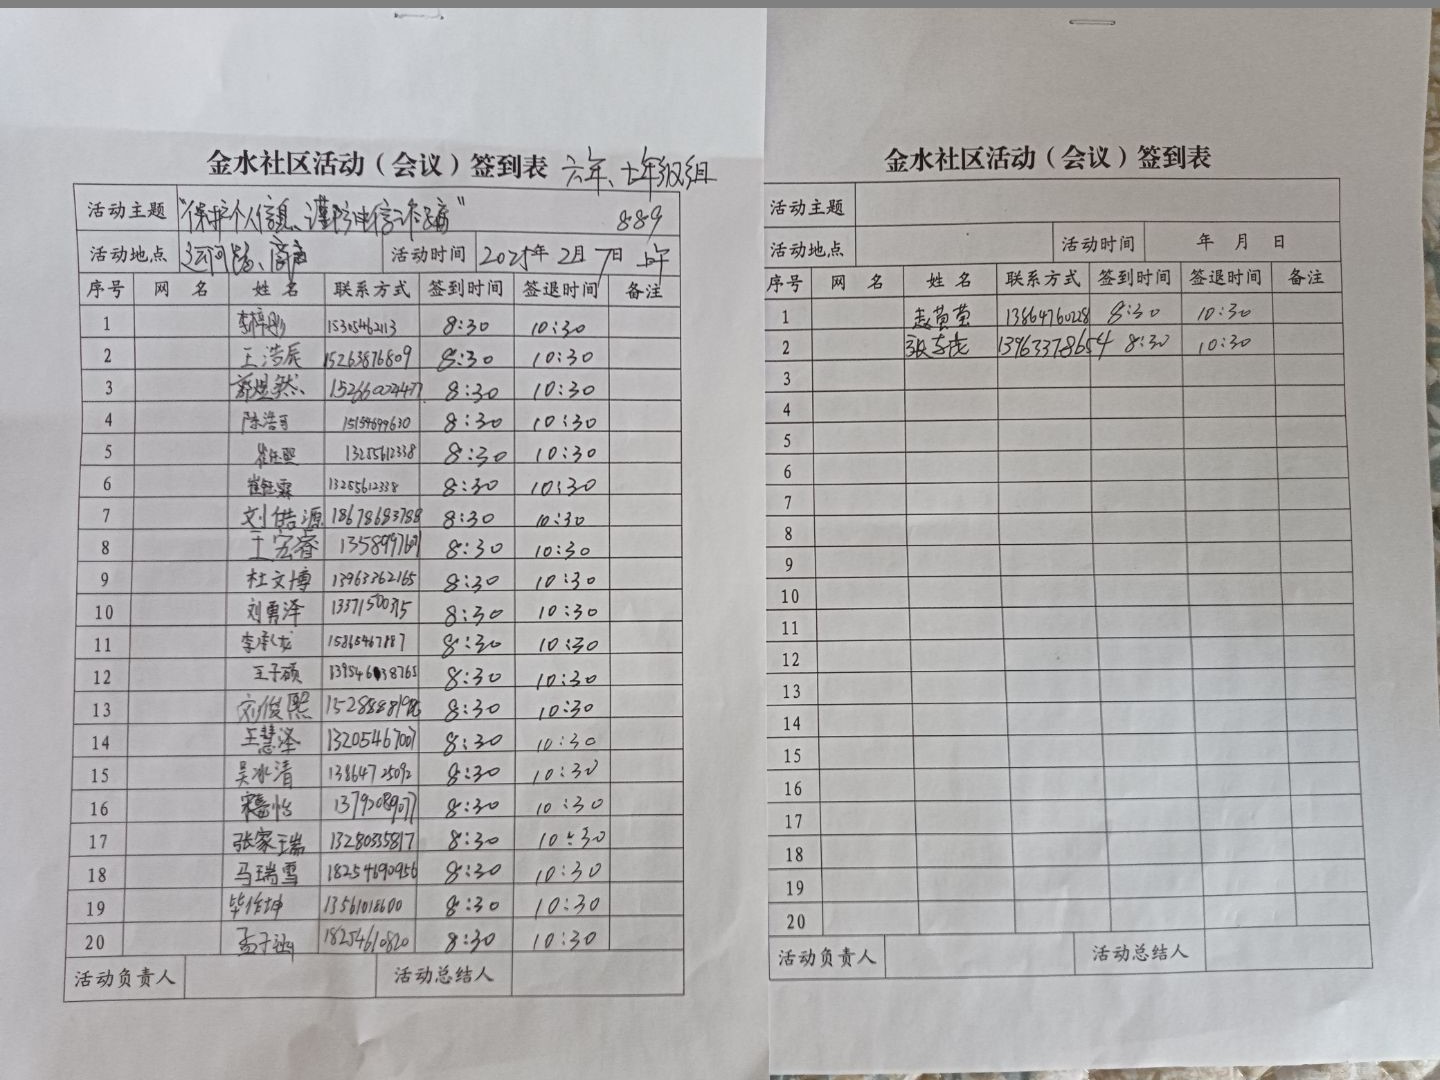 金水社区活动（会议）签到表 六年、七年级组
活动主题 "保护个人信息、谨防电信诈骗" 889
活动地点 活动时间 2025年2月7日 上午
序号 网 名 姓 名 联系方式 签到时间 签退时间 备注
1 8:30 10:30
2 王浩辰 15263876809 8:30 10:30
3 8:30 10:30
4 15154699630 8:30 10:30
5 13255612338 8:30 10:30
6 13255612338 8:30 10:30
7 刘皓源 18678683788 8:30 10:30
8 王宏睿 8:30 10:30
9 杜文博 13963362165 8:30 10:30
10 刘勇泽 8:30 10:30
11 8:30 10:30
12 王子硕 8:30 10:30
13 刘俊熙 8:30 10:30
14 王慧泽 13205467007 8:30 10:30
15 吴冰清 13864725092 8:30 10:30
16 13792089077 8:30 10:30
17 张家瑞 13280335817 8:30 10:30
18 马瑞雪 18254690956 8:30 10:30
19 13561018600 8:30 10:30
20 孟子涵 18254610820 8:30 10:30
活动负责人 活动总结人
金水社区活动（会议）签到表
活动主题
活动地点 活动时间 年 月 日
序号 网 名 姓 名 联系方式 签到时间 签退时间 备注
1 13864760228 8:30 10:30
2 13963378654 8:30 10:30
3
4
5
6
7
8
9
10
11
12
13
14
15
16
17
18
19
20
活动负责人 活动总结人